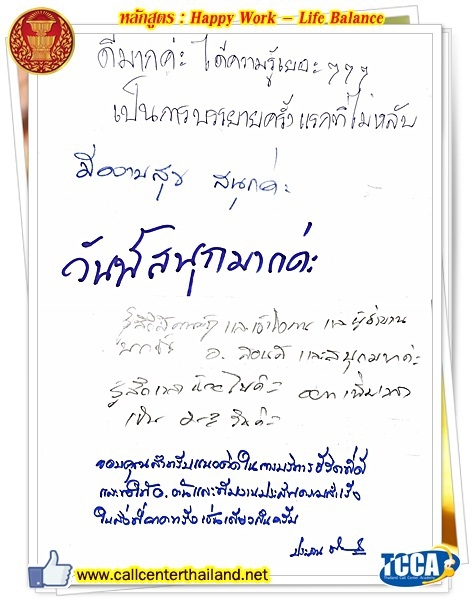 หลักสูตร : Happy Work – Life Balance
ดีมากค่ะ ได้ความรู้เยอะ ๆๆๆ
เป็นการบรรยายครั้งแรกที่ไม่หลับ
มีความสุข สนุกค่ะ
วันนี้สนุกมากค่ะ
และเข้าใจงาน และ
อ. สอนดี และสนุกมากค่ะ
รู้สึกเวลาน้อยไปค่ะ อยากเพิ่มเวลา
เป็น วันค่ะ
ขอบคุณสำหรับแนวคิดในการบริหารชีวิตที่ดี
และขอให้ อ. และทีมงานประสบความสำเร็จ
ในสิ่งที่คาดหวังเช่นเดียวกันครับ
www.callcenterthailand.net
TCCA